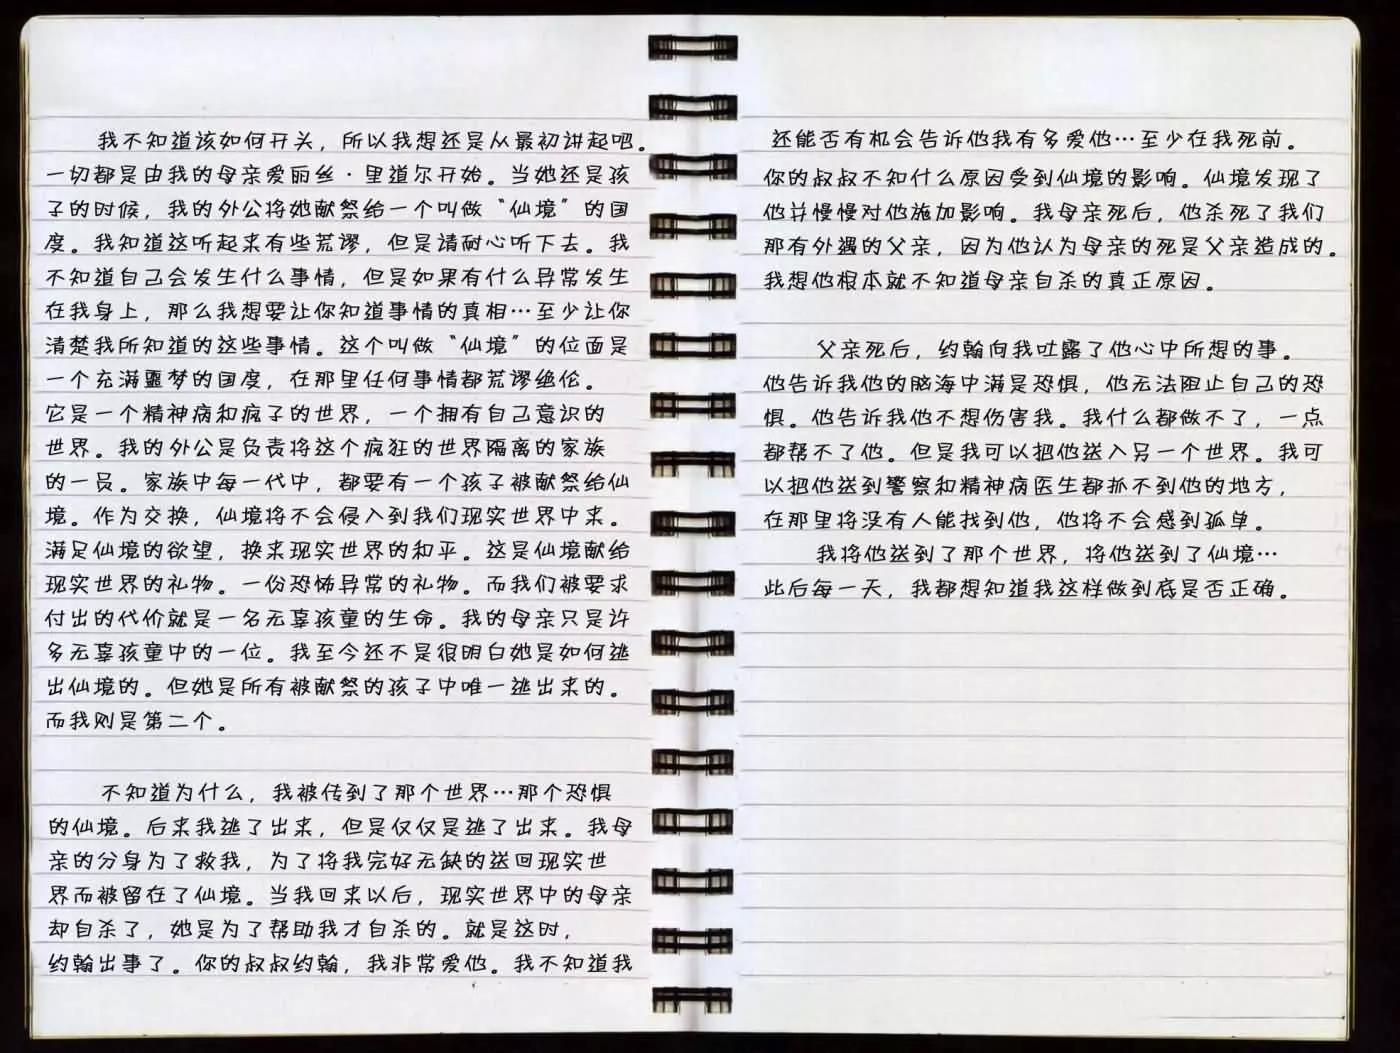 我不知道该如何开头，所以我想还是从最初讲起吧。
一切都是由我的母亲爱丽丝·里道尔开始。当她还是孩
子的时候，我的外公将她献祭给一个叫做“仙境”的国
度。我知道这听起来有些荒谬，但是请耐心听下去。我
不知道自己会发生什么事情，但是如果有什么异常发生
在我身上，那么我想要让你知道事情的真相…至少让你
清楚我所知道的这些事情。这个叫做“仙境”的位面是
一个充满噩梦的国度，在那里任何事情都荒谬绝伦。
它是一个精神病和疯子的世界，一个拥有自己意识的
世界。我的外公是负责将这个疯狂的世界隔离的家族
的一员。家族中每一代中，都要有一个孩子被献祭给仙
境。作为交换，仙境将不会侵入到我们现实世界中来。
满足仙境的欲望，换来现实世界的和平。这是仙境献给
现实世界的礼物。一份恐怖异常的礼物。而我们被要求
付出的代价就是一名无辜孩童的生命。我的母亲只是许
多无辜孩童中的一位。我至今还不是很明白她是如何逃
出仙境的。但她是所有被献祭的孩子中唯一逃出来的。
而我则是第二个。
不知道为什么，我被传到了那个世界…那个恐惧
的仙境。后来我逃了出来，但是仅仅是逃了出来。我母
亲的分身为了救我，为了将我完好无缺的送回现实世
界而被留在了仙境。当我回来以后，现实世界中的母亲
却自杀了，她是为了帮助我才自杀的。就是这时，
约翰出事了。你的叔叔约翰，我非常爱他。我不知道我
还能否有机会告诉他我有多爱他…至少在我死前。
你的叔叔不知什么原因受到仙境的影响。仙境发现了
他并慢慢对他施加影响。我母亲死后，他杀死了我们
那有外遇的父亲，因为他认为母亲的死是父亲造成的。
我想他根本就不知道母亲自杀的真正原因。
父亲死后，约翰向我吐露了他心中所想的事。
他告诉我他的脑海中满是恐惧，他无法阻止自己的恐
惧。他告诉我他不想伤害我。我什么都做不了，一点
都帮不了他。但是我可以把他送入另一个世界。我可
以把他送到警察和精神病医生都抓不到他的地方，
在那里将没有人能找到他，他将不会感到孤单。
我将他送到了那个世界，将他送到了仙境…
此后每一天，我都想知道我这样做到底是否正确。